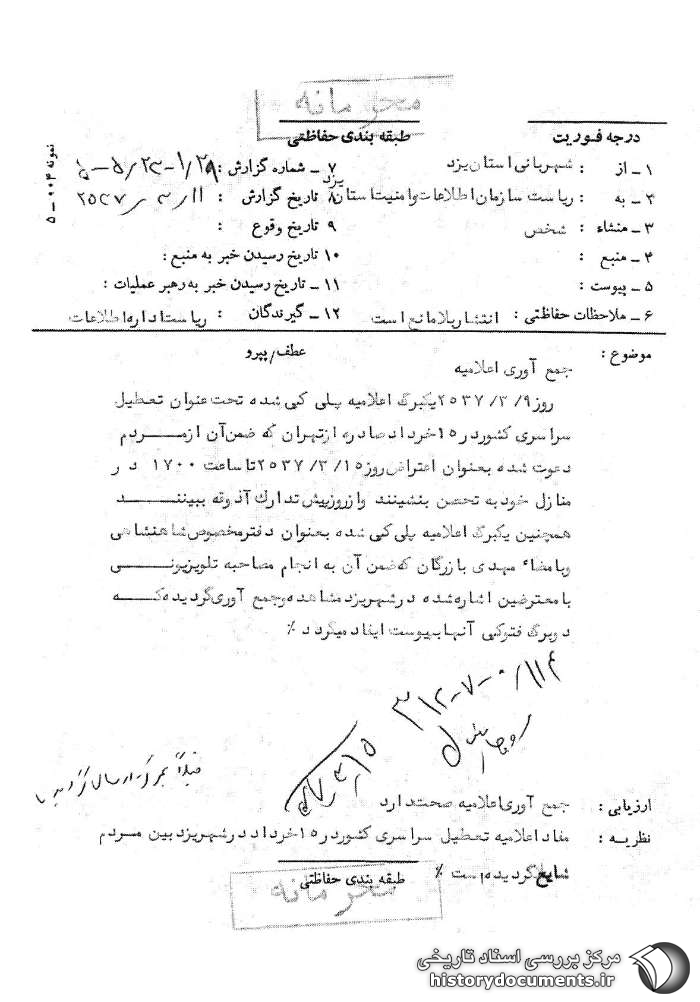 محرمانه
درجه فوریت
طبقه بندی حفاظتی
نمونه ۰۰۴ ــ ۵
۱ ــ از : شهربانی استان یزد
۷ ــ شماره گزارش :
۲ ــ به : ریاست سازمان اطلاعات و امنیت استان یزد
۸ تاریخ گزارش : ۱۱ / ۳ / ۲۵۳۷
۳ ــ منشاء : شخص
۹ تاریخ وقوع :
۴ ــ منبع :
۱۰ تاریخ رسیدن خبر به منبع :
۵ ــ پیوست :
۱۱ ــ تاریخ رسیدن خبر به رهبر عملیات :
۶ ــ ملاحظات حفاظتی : انتشار بلامانع است
۱۲ ــ گیرندگان : ریاست اداره اطلاعات
موضوع :
عطف/پیرو
جمع آوری اعلامیه
روز ۹/ ۳/ ۲۵۳۷ یکبرگ اعلامیه پلی کپی شده تحت عنوان تعطیل
سراسری کشور در ۱۵ خرداد صادره از تهران که ضمن آن از مردم
دعوت شده بعنوان اعتراض روز ۱۵/ ۳/ ۲۵۳۷ تا ساعت ۱۷۰۰ در
منازل خود به تحصن بنشینند و از روز پیش تدارك آذوقه ببینند
همچنین یکبرگ اعلامیه پلی کپی شده بعنوان دفتر مخصوص شاهنشاهی
و بامضاء مهدی بازرگان که ضمن آن به انجام مصاحبه تلویزیونی
با معترضین اشاره شده در شهر یزد مشاهده و جمع آوری گردیده که
دو برگ فتوکپی آنها بپیوست ایفاد میگردد ٪
۳۱۲-۷-۰/۱۱۴
۱۵/۳/۵۷
ارزیابی : جمع آوری اعلامیه صحت دارد
نظریه : مفاد اعلامیه تعطیل سراسری کشور در ۱۵ خرداد در شهر یزد بین مردم
شایع گردیده است ٪
طبقه بندی حفاظتی
محرمانه
مرکز بررسی اسناد تاریخی
historydocuments.ir